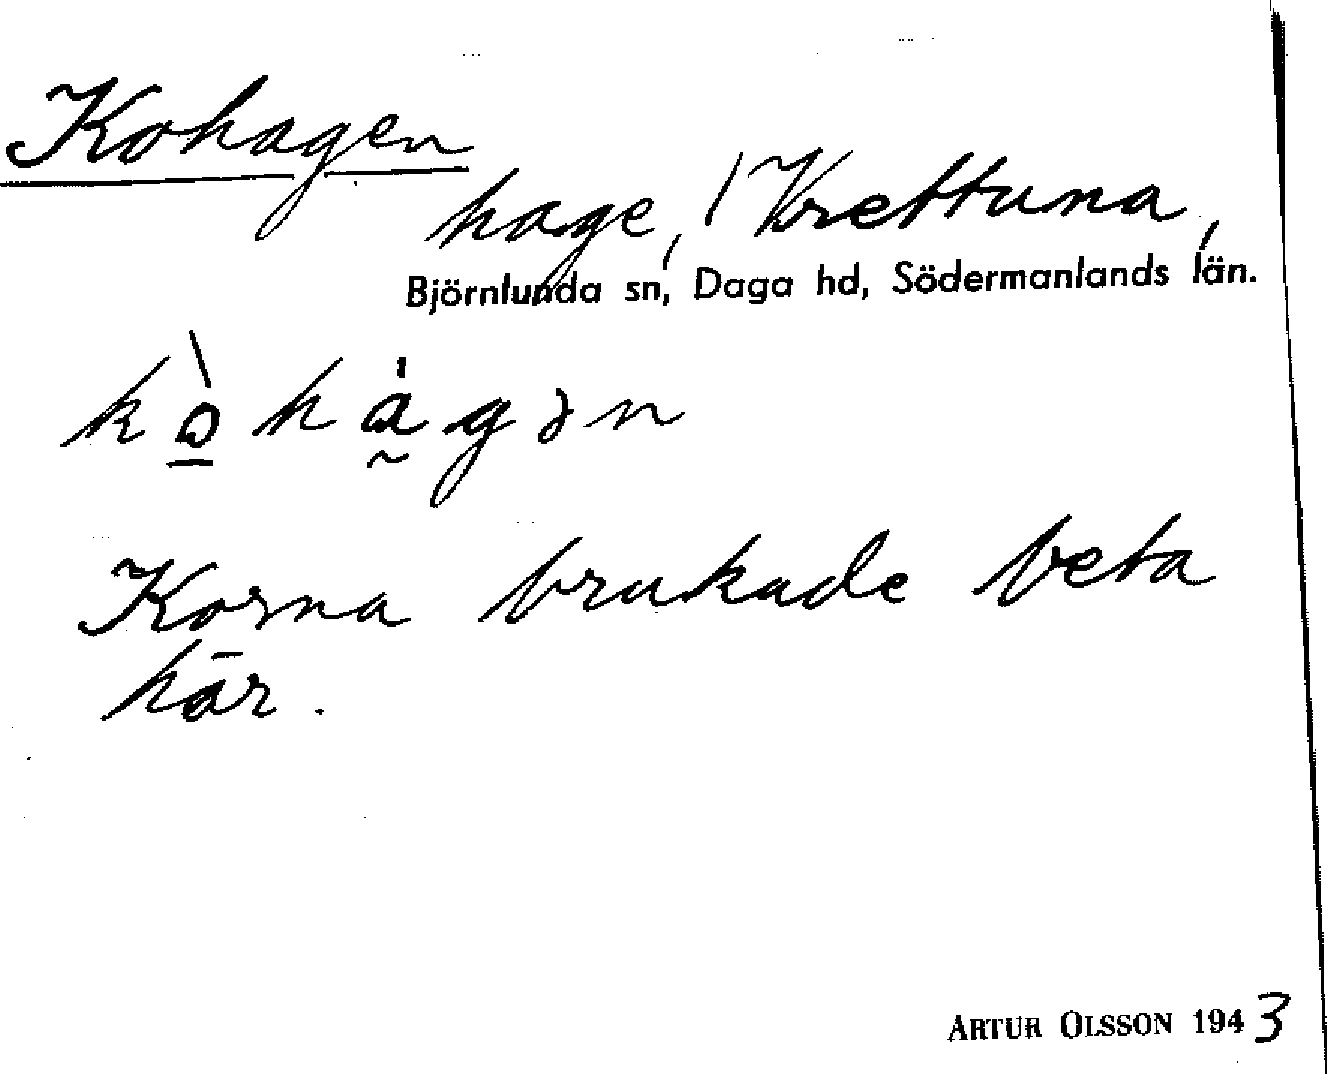 Kohagen
hage, 1 Krettuna,
Björnlunda sn, Daga hd, Södermanlands län.
kòhágən
Korna brukade beta
här.
ARTUR OLSSON 1943